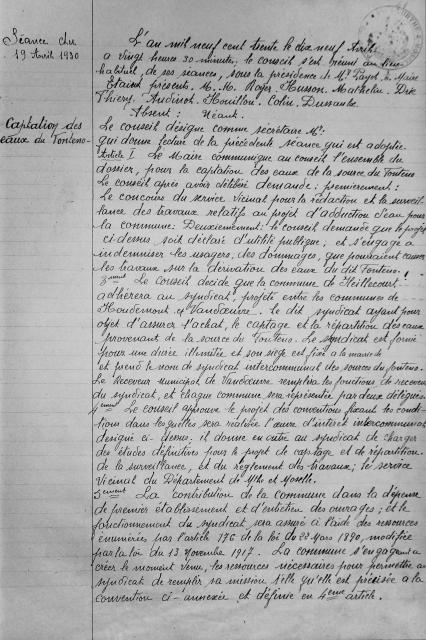 Séance du
19 Avril 1930
L'an mil neuf cent trente le dix neuf Avril
a vingt heures 30 minutes, le conseil s'est réuni au lieu
habituel, de ses séances, sous la présidence de Mr Payot, le Maire
Etaient présents. M. M. Roger. Husson. Mathelin.
Thiery. Audinot. Houillon. Colin. Dussaulx
Absent: Néant.
Captation des
eaux du Fonteno-
Le conseil désigne comme secrétaire Mr:
qui donne lecture de la précédente séance qui est adoptée
Article I. Le Maire communique au conseil l'ensemble du
dossier, pour la captation des eaux de la source du Fonteno
Le conseil après avoir délibéré demande: premièrement:
Le concours du service vicinal pour la rédaction et la surveil
lance des travaux relatif au projet d'adduction d'eau pour
la commune: Deuxièmement: le conseil demande que le projet
ci-dessus, soit déclaré d'utilité publique, et s'engage a
indemniser les usagers, des dommages, que pourraient causer
les travaux sur la dérivation des eaux du dit Fonteno.
3ment Le Conseil décide que la commune de Heillecourt
adhérera au syndicat, projeté entre les communes de
Houdemont et Vandœuvre. Le dit syndicat ayant pour
objet d'assurer l'achat, le captage et la répartition des eaux
provenant de la source du Fonteno. Le syndicat est formé
pour une durée illimitée et son siège est fixé a la mairie de
et prend le nom de syndicat intercommunal des sources du fonteno.
Le Receveur municipal de Vandœuvre remplira les fonctions de receveur
du syndicat, et chaque commune sera représentée par deux délégués.
4ement Le conseil approuve le projet des conventions fixant les condi-
tions dans lesquelles sera réalisée l'œuvre d'intérêt intercommunal
désigné ci-dessus. il donne en outre au syndicat de charger
des études définitives pour le projet de captage et de répartition.
de la surveillance, et du règlement des travaux; le service
Vicinal du Département de Mthe et Moselle.
5ement La contribution de la commune dans la dépense
de premier établissement et d'entretien des ouvrages; et le
fonctionnement du syndicat, sera assuré à l'aide des ressources
énumérées par l'article 176 de la loi du 22 Mars 1890, modifiée
par la loi du 13 Novembre 1917. La commune s'engageant a
créer le moment venu, les ressources nécessaires pour permettre au
syndicat de remplir sa mission telle qu'elle est précisée a la
convention ci-annexée et définie en 4ème article.